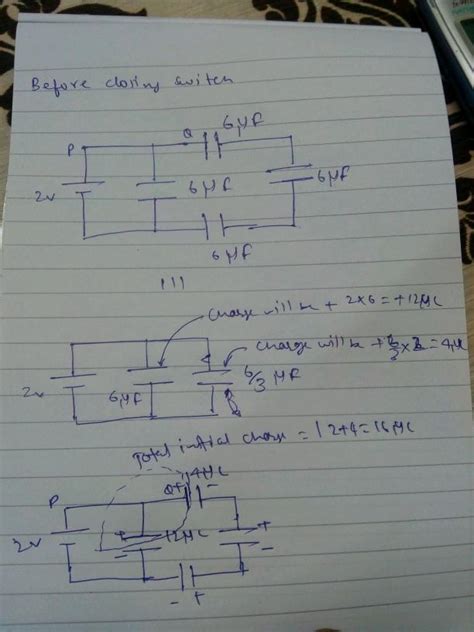 Before closing switch
P Q 6μF
2v 6μF 6μF
6μF
111
charge will be + 2×6=+12μC
charge will be + ×2=4μC
2v 6μF 6/3 μF
Total initial charge = 12+4=16μC
P Q + 4μC -
2v + 12μC +
- -
- +